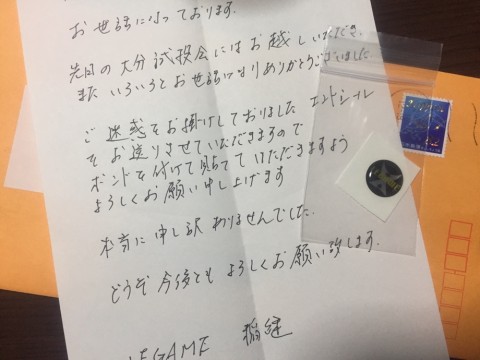 お世話になっております.
先日の大分試投会にはお越しいただき、
また いろいろとお世話になりありがとうございました
ご迷惑をお掛けしておりました エンドシール
をお送りさせていただきますので
ボンドを付けて貼っていただきますよう
よろしくお願い申し上げます
本当に申し訳ありませんでした.
どうぞ今後とも よろしくお願い致します.
LEGAME 稲継